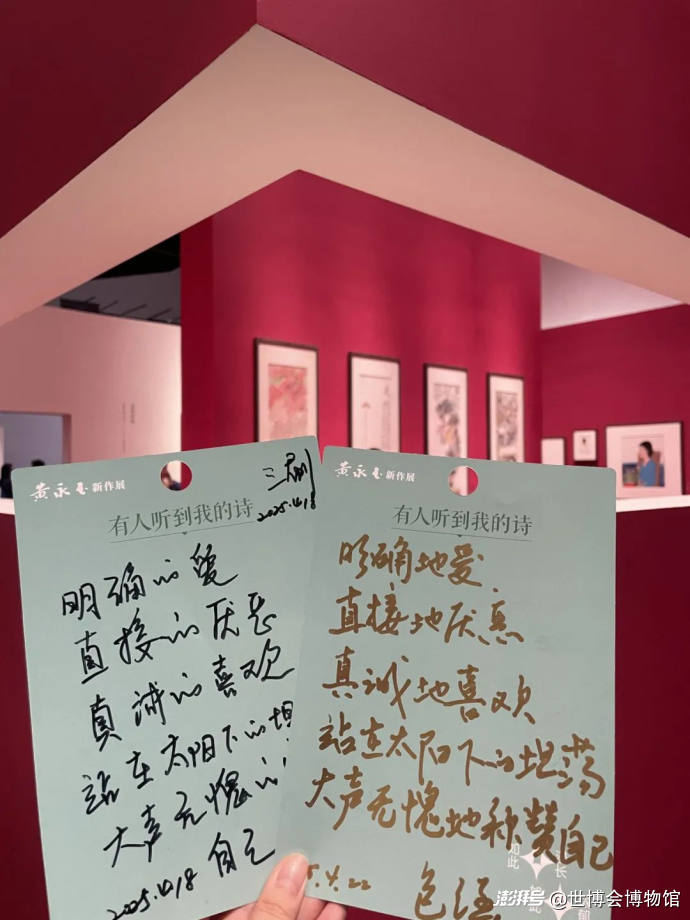 黄永玉新作展
三刷
2025.4.18
有人听到我的诗
明确的爱
直接的厌恶
真诚的喜欢
站在太阳下的坦
大声无愧的
自己
2025.4.18
黄永玉新作展
有人听到我的诗
明确地爱
直接地厌恶
真诚地喜欢
站在太阳下的坦荡
大声无愧地称赞自己
如此
长
5.4.22
澎湃号@世博会博物馆